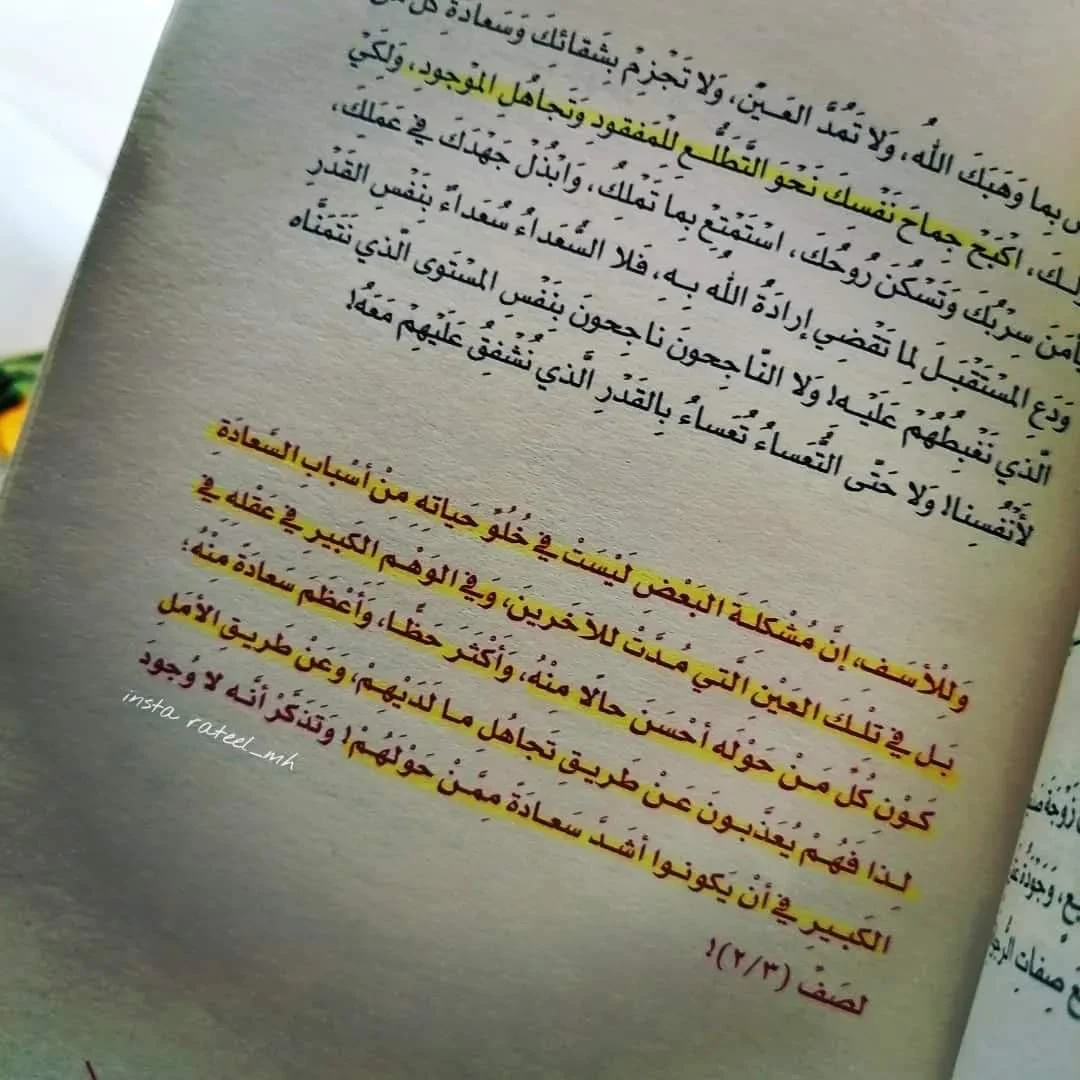 وَلا تَجْزِمْ بِشَقائِكَ وَسَعادَةِ
بِما وَهَبَكَ اللهُ، وَلا تَمُدَّ العَـيْنَ،
اكْبَحْ جِماحَ نَفْسِكَ نَحْوَ التَّطَلُّـعِ لِلْمَفقودِ وَتَجاهُلِ المَوْجودِ، وَلِكَيْ
يَأمَنَ سِرْبُكَ وَتَسْكُنَ رُوحُكَ، اسْتَمْتِعْ بِما تَملِكُ، وَابْذُلْ جَهْدَكَ في عَمَلِكَ،
وَدَعِ المسْتَقْبَـلَ لِما تَقْضِي إرادَةُ اللهِ بِـهِ، فَلا السُّعَداءُ سُعَداءٌ بِنَفْسِ القَدْرِ
الَّذي نَغْبِطُهُمْ عَلَيْـهِ! وَلا النّاجِحونَ ناجِحونَ بِنَفْسِ المسْتَوى الَّذي نَتَمَنَّاه
لأَنْفُسِنا! وَلا حَتَّى التُّعَساءُ تُعَساءُ بِالقَدْرِ الَّذي نُشْفِقُ عَلَيْهِمْ مَعَهُ!
وَلِلْأسَـفِ، إنَّ مُشْكَلَـةَ البَعْضِ لَيْسَتْ في خُلُوِّ حَياتِهِ مِنْ أسْبابِ السَّعادَةِ
بَـل في تِلْـكَ العَيْنِ الَّتي مُـدَّتْ للآخَرينَ، وَفي الوَهْـمِ الكَبيرِ في عَقْلِهِ في
كَـوْنِ كُلِّ مَـنْ حَوْلَهِ أحْسَنَ حالًا مِنْهُ، وَأكْثَـرَ حَظًّا، وَأعْظَمَ سَعادَةً مِنْهُ؛
لِـذا فَهُـمْ يُعَذَّبـونَ عَـنْ طَريـقِ تَجاهُلِ مـا لَدَيْهِـمْ، وَعَنْ طَريقِ الأمَلِ
الكَبـيرِ في أنْ يَكونـوا أشَـدَّ سَعـادَةً مِمَّـنْ حَوْلَهُـمْ! وَتَذَكَّرْ أنَّـه لا وُجودَ
لصَفْ (٢/٣)!
insta rateel_mh
زَوْجَة
وَجَوْدَةُ
صِفاتِ